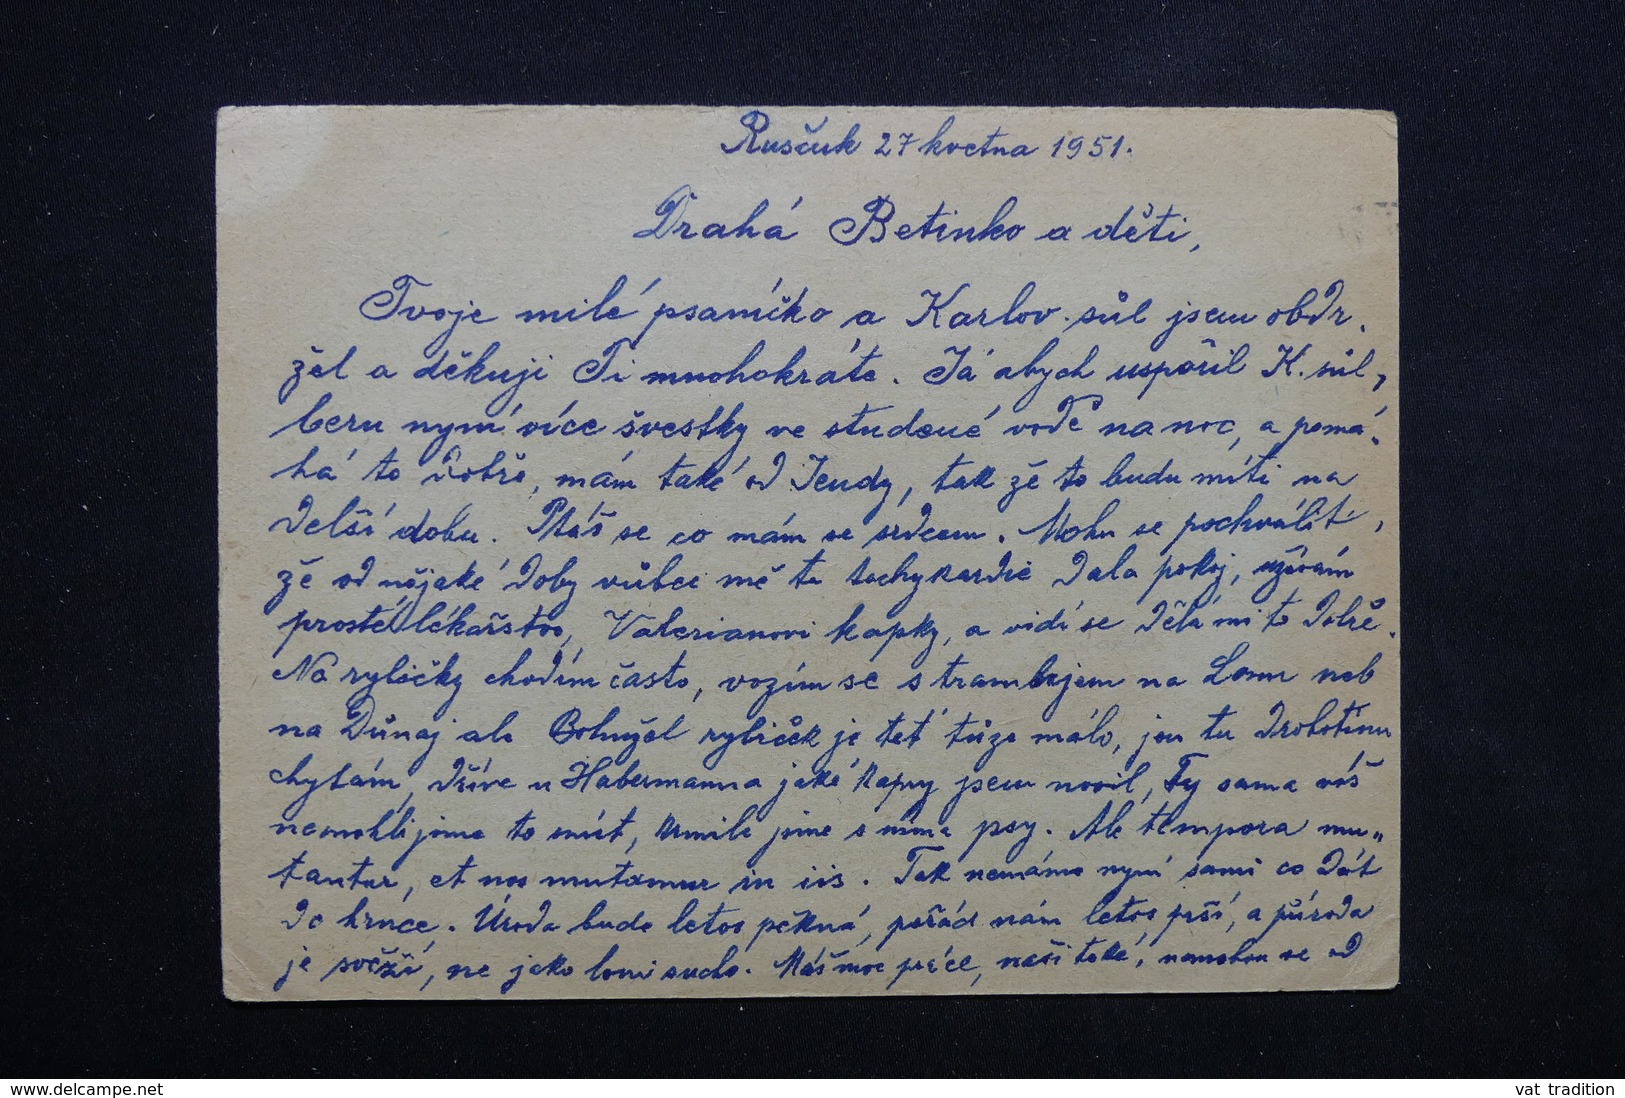 Rusčuk 27 května 1951.
Drahá Betinko a děti,
Tvoje milé psaníčko a Karlov. sůl jsem obdr.
žel a děkuji Ti mnohokráte. Já abych uspořil K. sůl,
beru nyní více švestky ve studené vodě na noc, a pomá-
há to dobře, mám také od Jendy, tak že to budu míti na
delší dobu. Ptáš se co mám se srdcem. Mohu se pochválit,
že od nějaké doby vůbec mě ta tachykardie dala pokoj, užívám
prosté lékařstvo, Valerianovi kapky, a vidí se dělá mi to dobře.
Na rybičky chodím často, vozím se s trambajem na Lom neb
na Dunaj ale Bohužel rybiček je teť tůze málo, jen tu drobotinu
chytám, dříve u Habermanna jaké kapry jsem novil, Ty sama víš
nemohli jsme to sníst, krmile jsme s nima psy. Ale tempora mu„
tantur, et nos mutamur in iis. Tak nemáme nyní sami co dát
do hrnce. Úroda bude letos pěkná, pořád nám letos prší, a příroda
je svěží, ne jako loni sucho. Máš moc práce, naši také, nemohou se od
www.delcampe.net
vat tradition